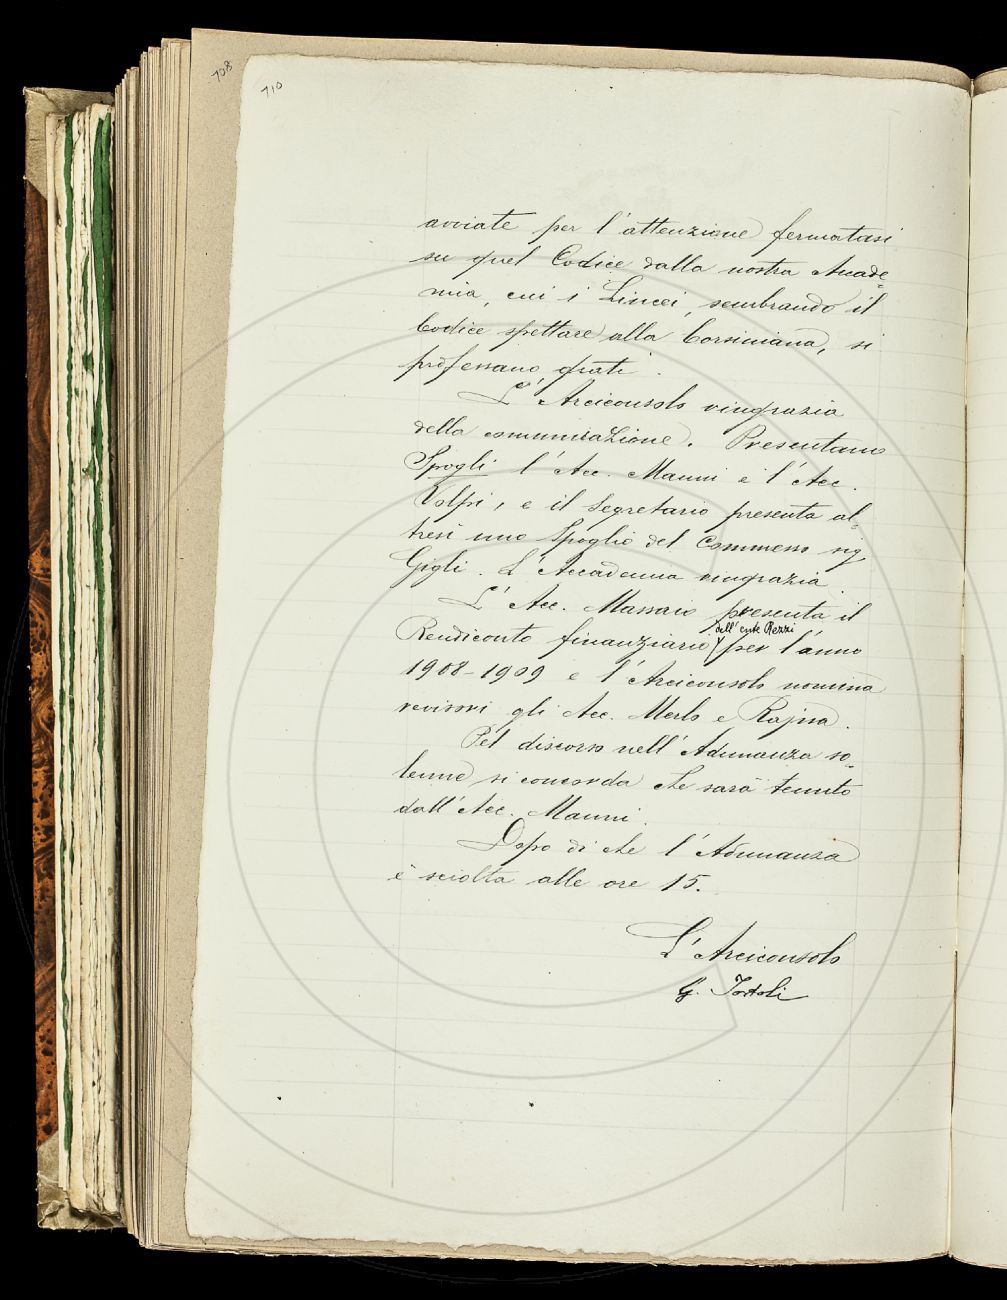 708
710
avviate per l'attenzione fermatasi
su quel Codice dalla nostra Accade=
mia, cui i Lincei, sembrando il
Codice spettare alla Corsiniana, si
professano grati.
L'Arciconsolo ringrazia
della comunicazione. Presentano
Spogli l'Acc. Mauni e l'Acc.
Volpi, e il Segretario presenta al=
tresì uno Spoglio del Commesso sig
Gigli. L'Accademia ringrazia
L'Acc. Massaio presenta il
dell'ente Rezzi
Rendiconto finanziario per l'anno
1908-1909 e l'Arciconsolo nomina
revisori gli Acc. Merlo e Rajna.
Pel discorso nell'Adunanza so=
lenne si concorda che sarà tenuto
dall'Acc. Mauni.
Dopo di che l'Adunanza
è sciolta alle ore 15.
L'Arciconsolo
G. Tortoli